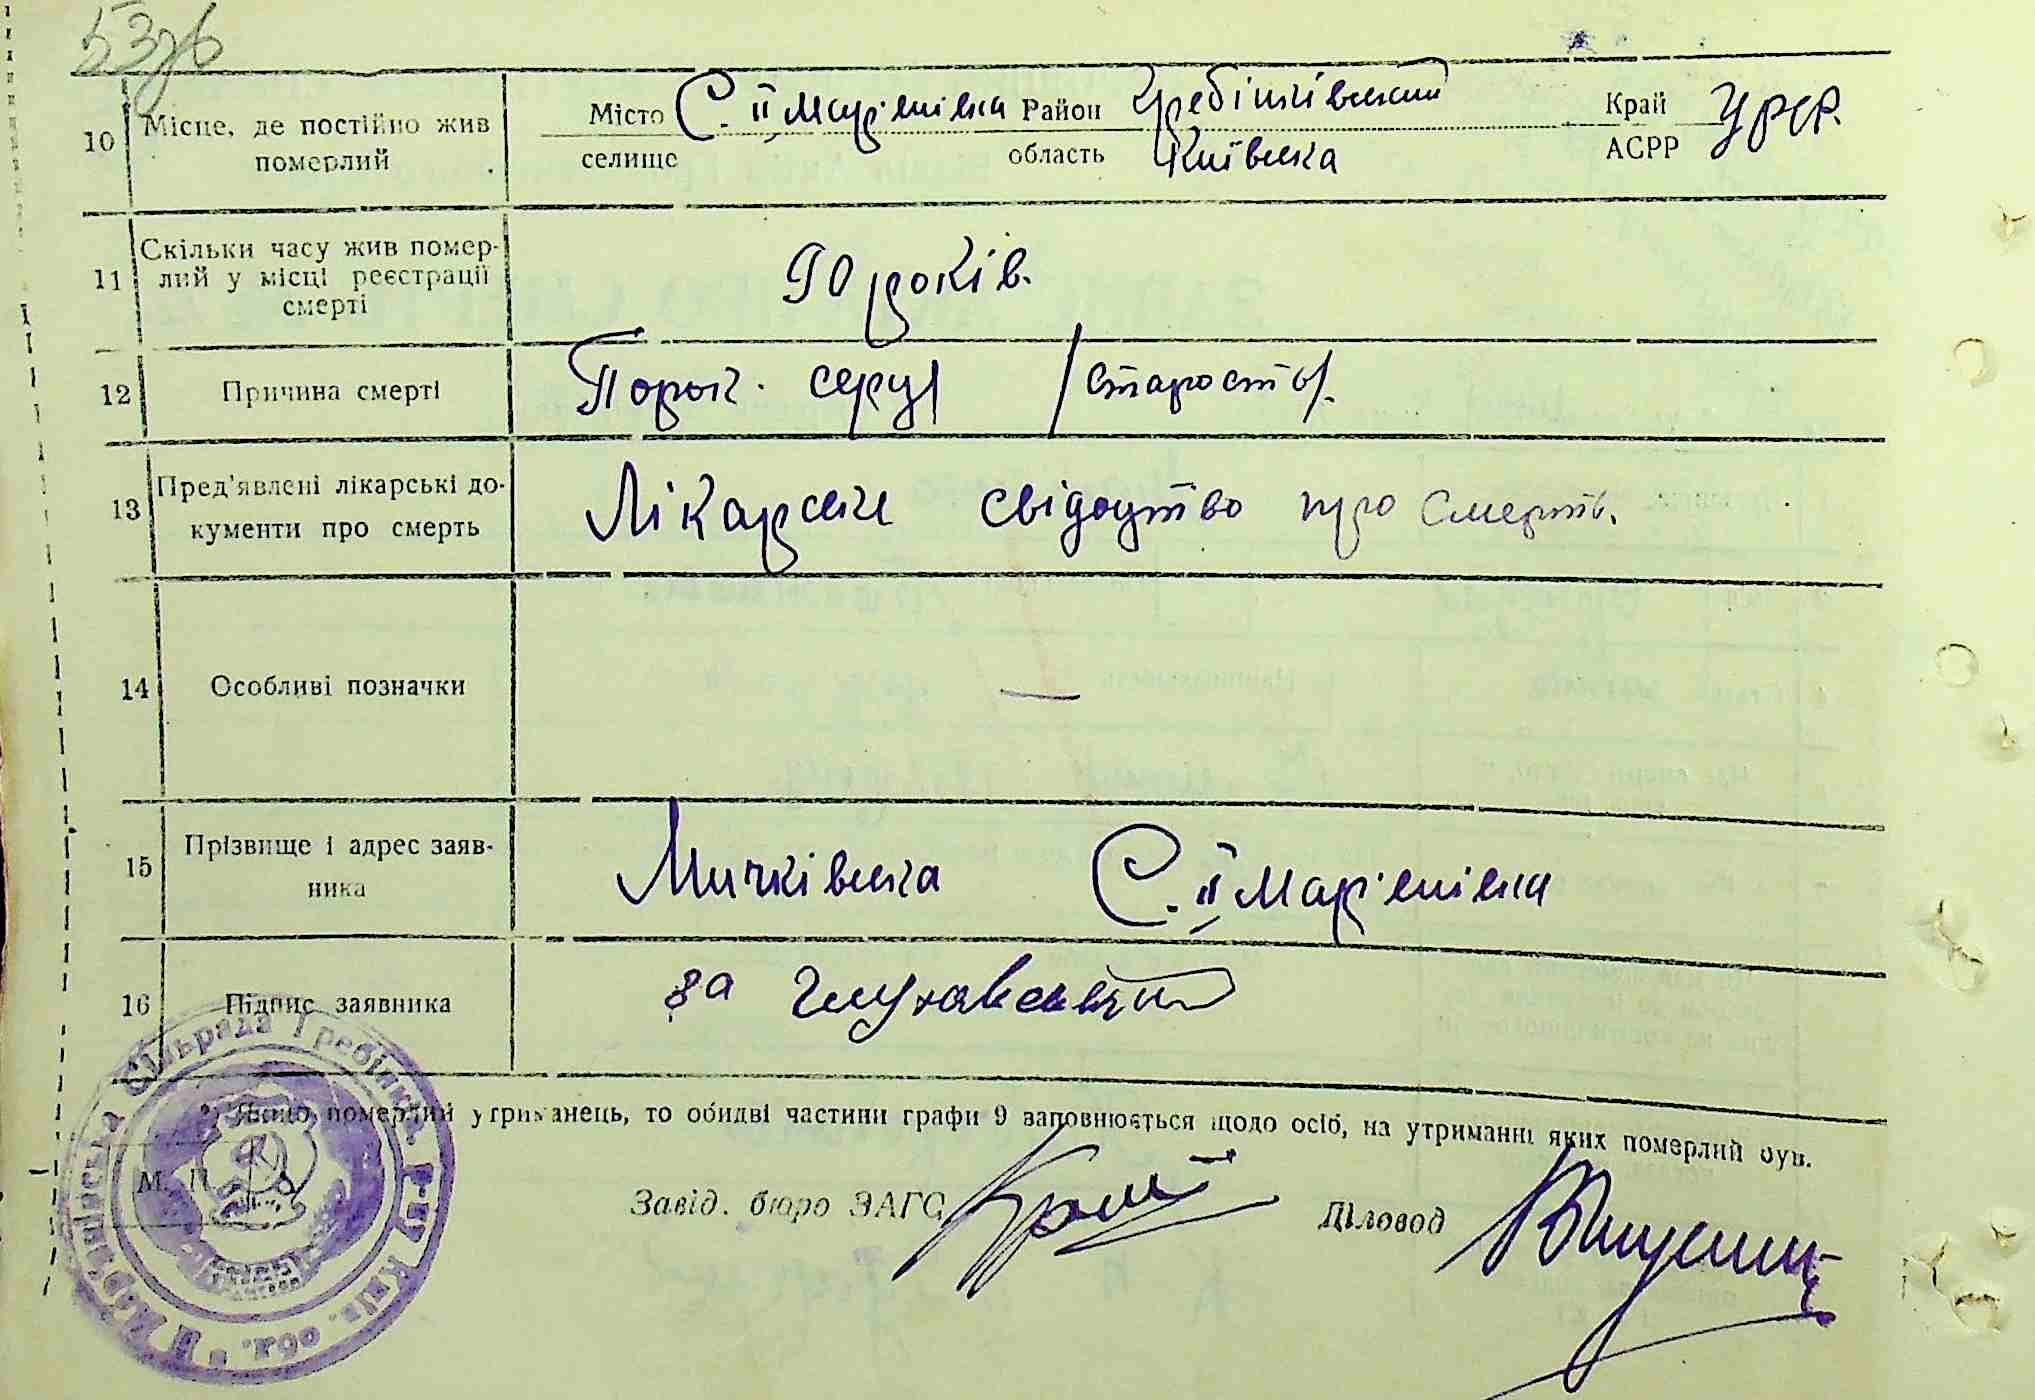 53зв
10 Місце, де постійно жив померлий
Місто С. ІІ Мар'янівка Район Гребінківський Край УРСР.
селище область Київська АСРР
11 Скільки часу жив помер-
лий у місці реєстрації
смерті
90 років.
12 Причина смерті Порок серця /старость/.
13 Пред'явлені лікарські до-
кументи про смерть
Лікарське свідоцтво про смерть.
14 Особливі позначки —
15 Прізвище і адрес заяв-
ника
Мичківська С. ІІ Мар'янівка
16 Підпис заявника за
*) Якщо померлий утриманець, то обидві частини графи 9 заповнюється щодо осіб, на утриманні яких померлий був.
М. П.
Завід. бюро ЗАГС Діловод
ІІ Мар'янівська Сільрада Гребінків. Р-ну Київ. обл.